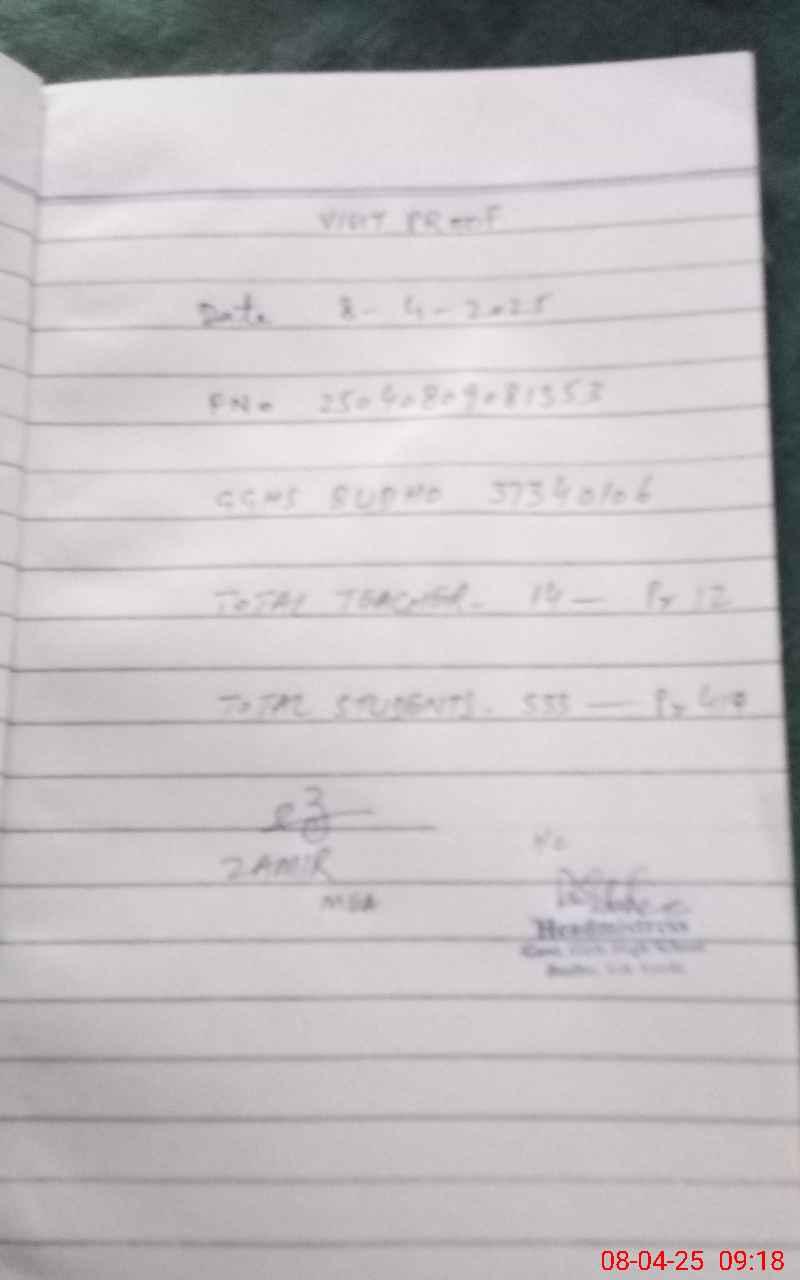 VISIT PROOF
Date 8-4-2025
FNo 25040809081353
GGHS BUDHO 37340106
TOTAL TEACHER- 14 — Pr 12
TOTAL STUDENTS- 533 — Pr
ZAMIR
MEA
H/C
Headmistress
Govt. Girls High School
08-04-25 09:18